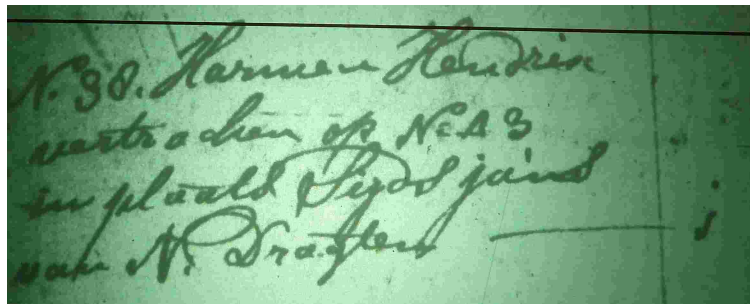 No. 38. Harmen Hendrix
vertrocken op No. 43
in plaats Sijds jans
van N. Dragten — j